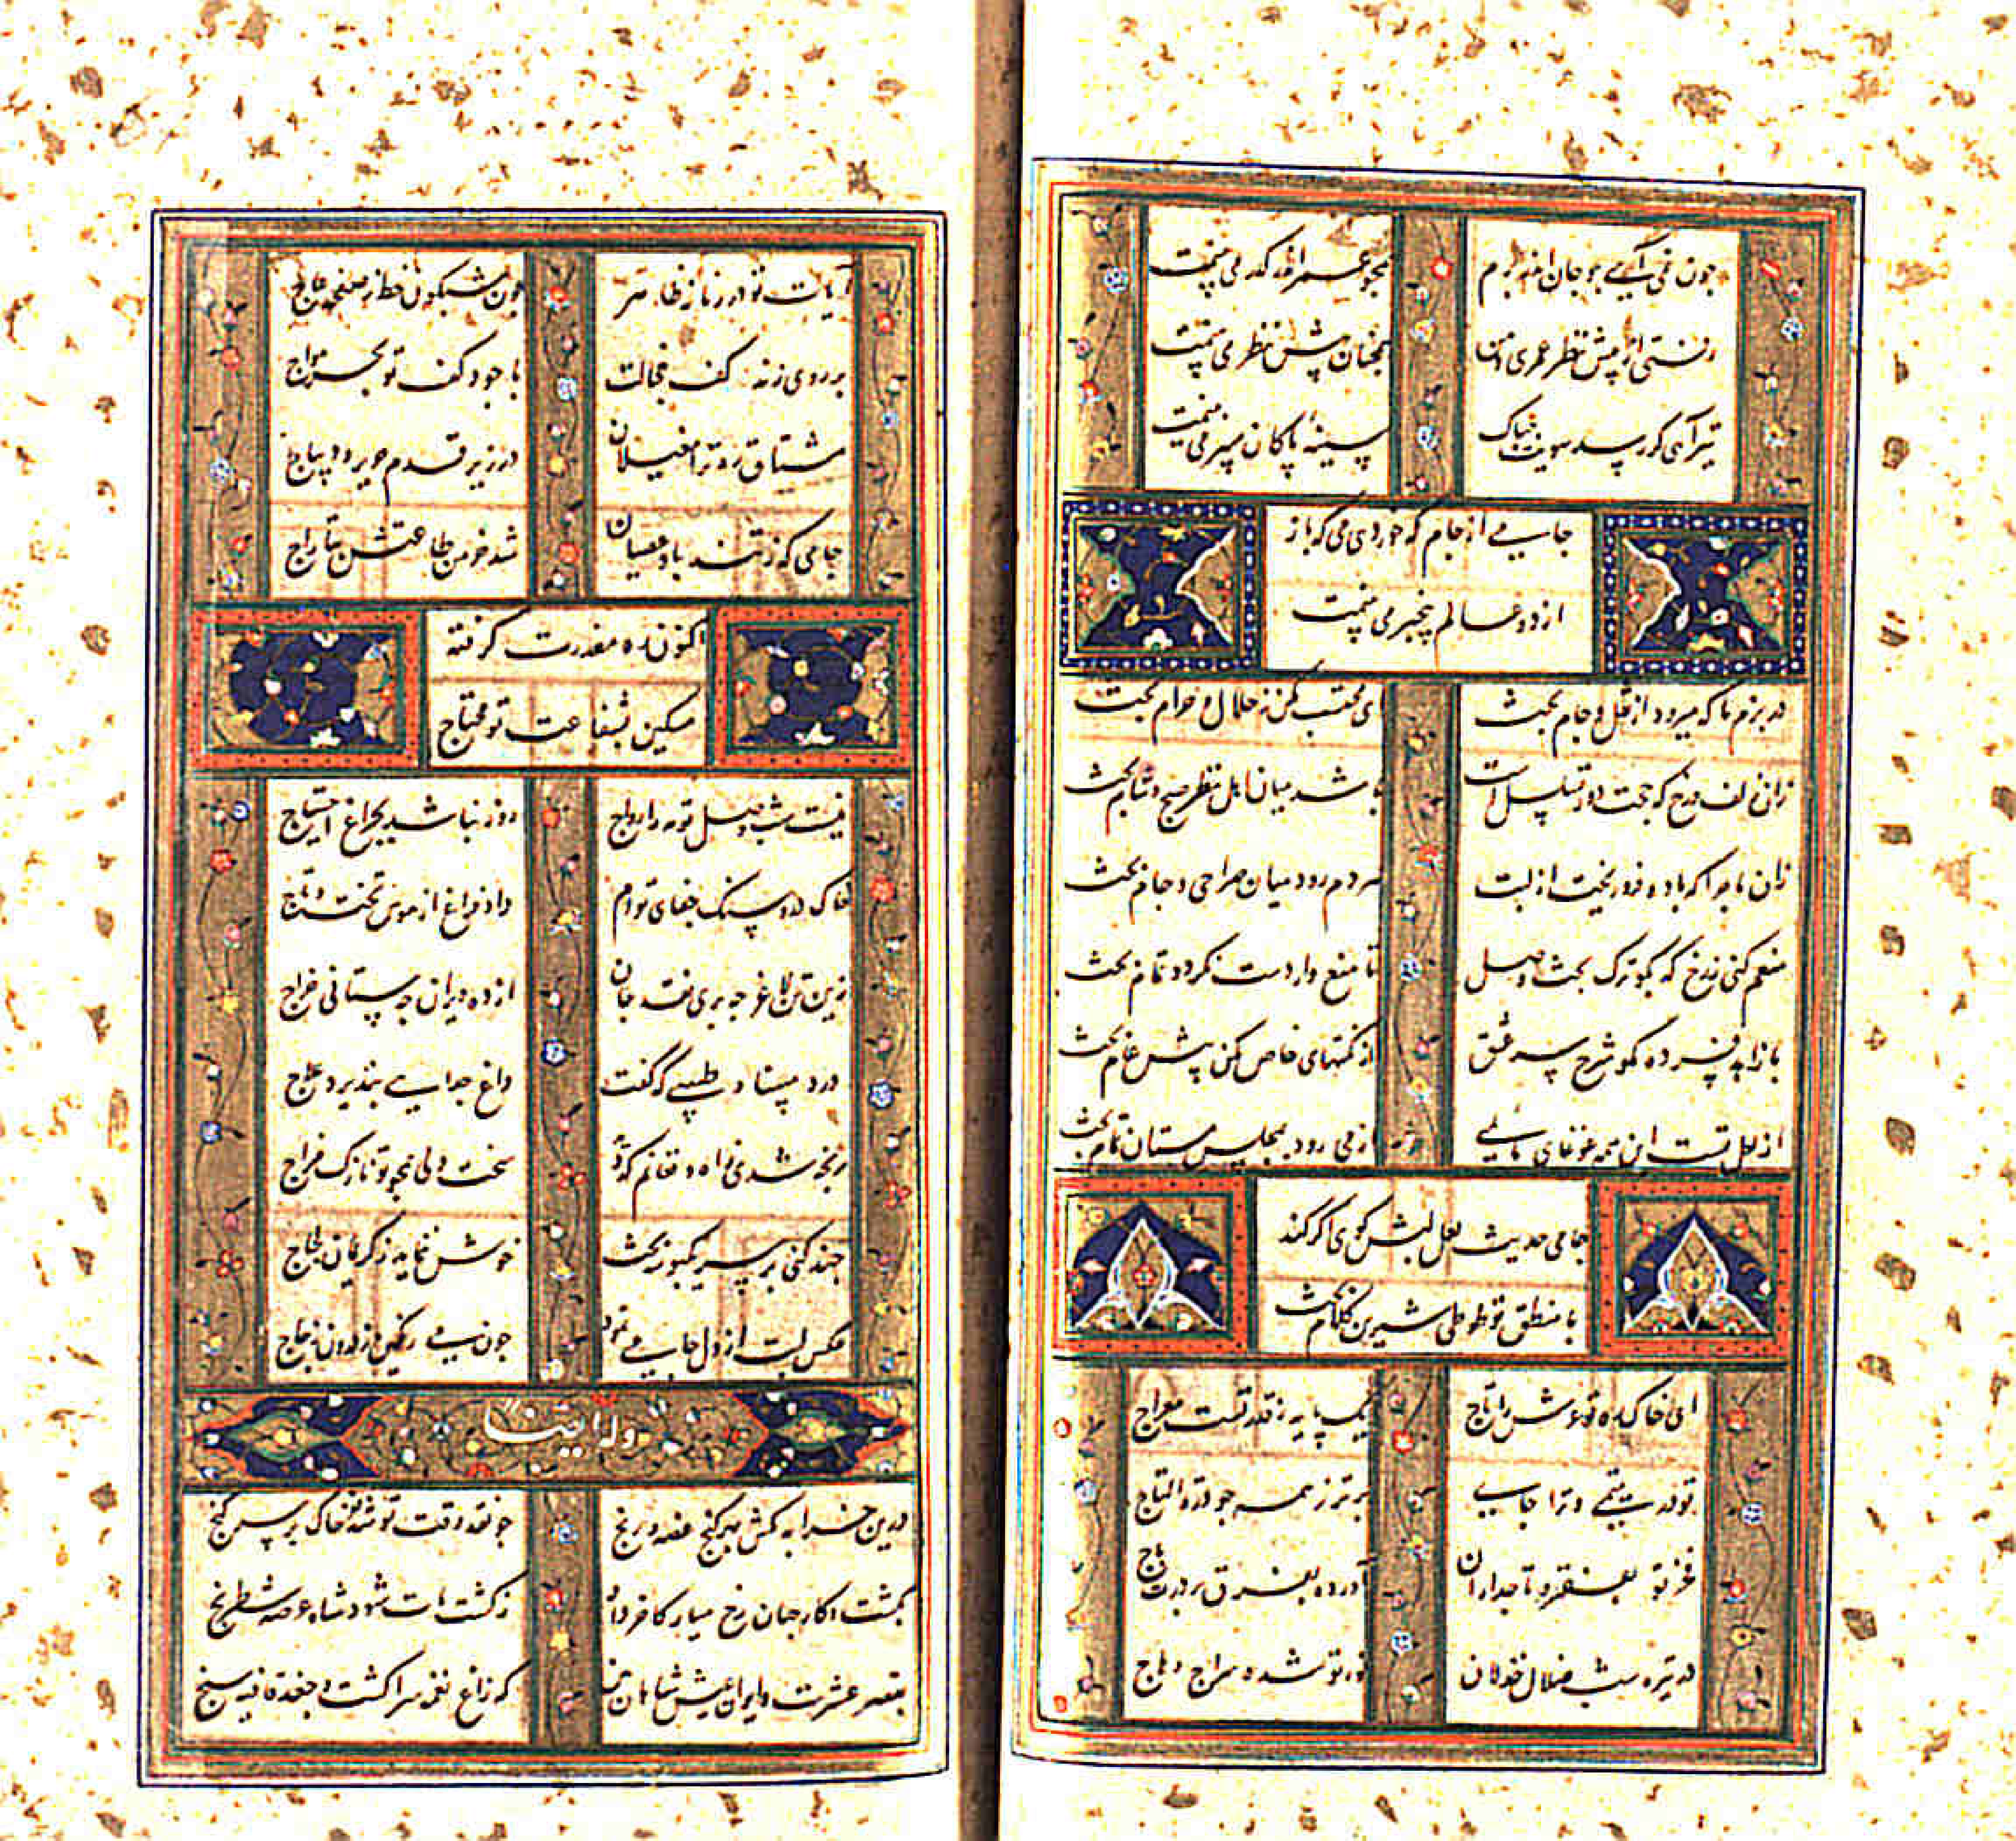 چون نمی آیی چو جان اندر برم
همچو عمر اندر گذر می بینمت
رفتی از پیش نظر عمری و من
همچنان پیش نظر می بینمت
تیر آهی گر رسد سویت چه باک
سینهٔ پاکان سپر می بینمت
جامی از جام که خوردی می که باز
از دو عالم بیخبر می بینمت
در بزم ما که میرود از نقل و جام بحث
ای محتسب مکن ز حلال و حرام بحث
زان زلف و رخ که حجت دور و تسلسل است
باشد میان اهل نظر صبح و شام بحث
زان ماجرا که باده فرو ریخت از لبت
هر دم رود میان صراحی و جام بحث
منعم کنی ز رخ که بگو ترک بحث وصل
تا منع وارد است نگردد تمام بحث
با زاهد فسرده مگو شرح سر عشق
از نکتهای خاص مکن پیش عام بحث
از لعل تست این همه غوغای ما بلی
از می رود بمجلس مستان مدام بحث
جامی حدیث لعل لبش گوی اگر کند
با منطق تو طوطی شیرین کلام بحث
ای خاک ره تو عرش را تاج
یک پایه ز قدر تست معراج
تو در یتیمی و ترا جای
برتر ز همه چو درة التاج
فخر تو بفقر و تاجداران
آورده بفرق بر درت باج
در تیره شب ضلال خذلان
نور تو شده سراج وهاج
آیات تو در زمانه ظاهر
چون مشکین خط ز صفحهٔ عاج
بر روی زند کف خجالت
با جود کف تو بحر مواج
مشتاق ترا ره مغیلان
در زیر قدم حریر و دیباج
جامی که ز تند باد عصیان
شد خرمن طاعتش بتاراج
اکنون ره معذرت گرفته
مسکین بشفاعت تو محتاج
نیست شب وصل تو مه را رواج
روز نباشد بچراغ احتیاج
خاک در و سنگ جفای توام
داد فراغ از هوس تخت و تاج
زین تن لاغر چه بری نقد جان
از ده ویران چه ستانی خراج
درد مبیناد طبیبی که گفت
داغ جدایی نپذیرد علاج
رنجه شدی ز آه و فغانم که دید
سخت دلی همچو تو نازک مزاج
چند کنی بر سر یک بوسه بحث
خوش ننماید ز کریمان لجاج
عکس لبت از دل جامی نمود
چون می رنگین ز درون زجاج
وله ایضا
درین خرابه مکش بهر گنج غصه و رنج
چو نقد وقت تو شد فقر خاک بر سر گنج
بکشت کار جهان رخ میار کآخر کار
ز کشت مات شود شاه عرصه شطرنج
بقصر عشرت و ایوان عیش شاهان بین
که زاغ نغمه سرا گشت و جغد قافیه سنج